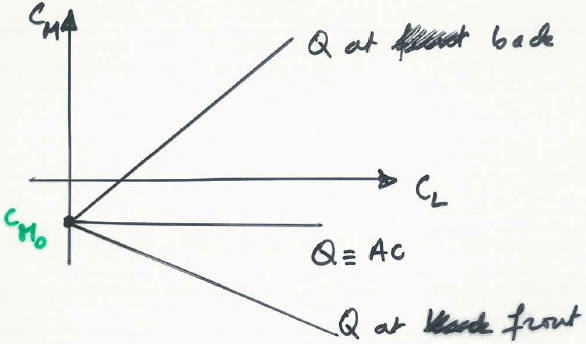 C_M
Q at back
C_L
C_M₀
Q ≡ AC
Q at front